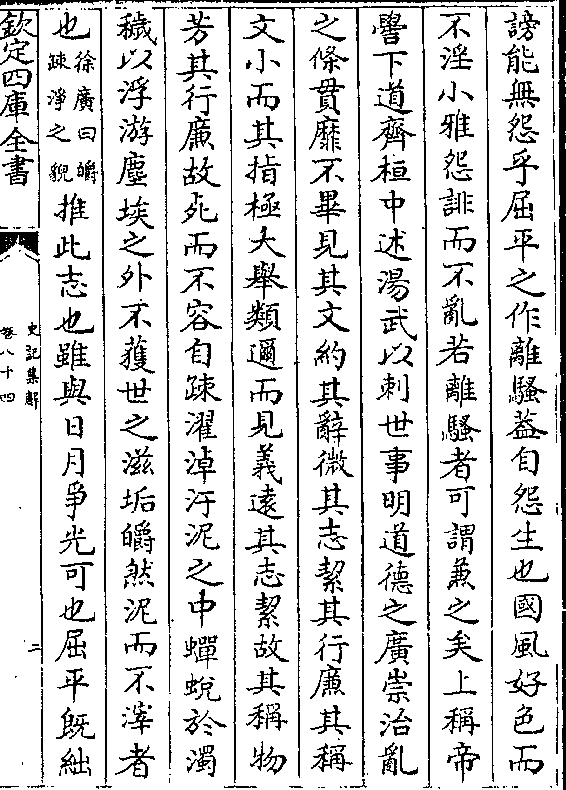 謗能無怨乎屈平之作離騷蓋自怨生也國風好色而
不淫小雅怨誹而不亂若離騷者可謂兼之矣上稱帝
嚳下道齊桓中述湯武以刺世事明道德之廣崇治亂
之條貫靡不畢見其文約其辭微其志絜其行廉其稱
文小而其指極大舉類邇而見義遠其志絜故其稱物
芳其行廉故死而不容自疎濯淖汙泥之中蟬蛻於濁
穢以浮游塵埃之外不獲世之滋垢皭然泥而不滓者
也徐廣曰皭疎淨之貌推此志也雖與日月爭光可也屈平既絀
欽定四庫全書
史記集解
卷八十四
二